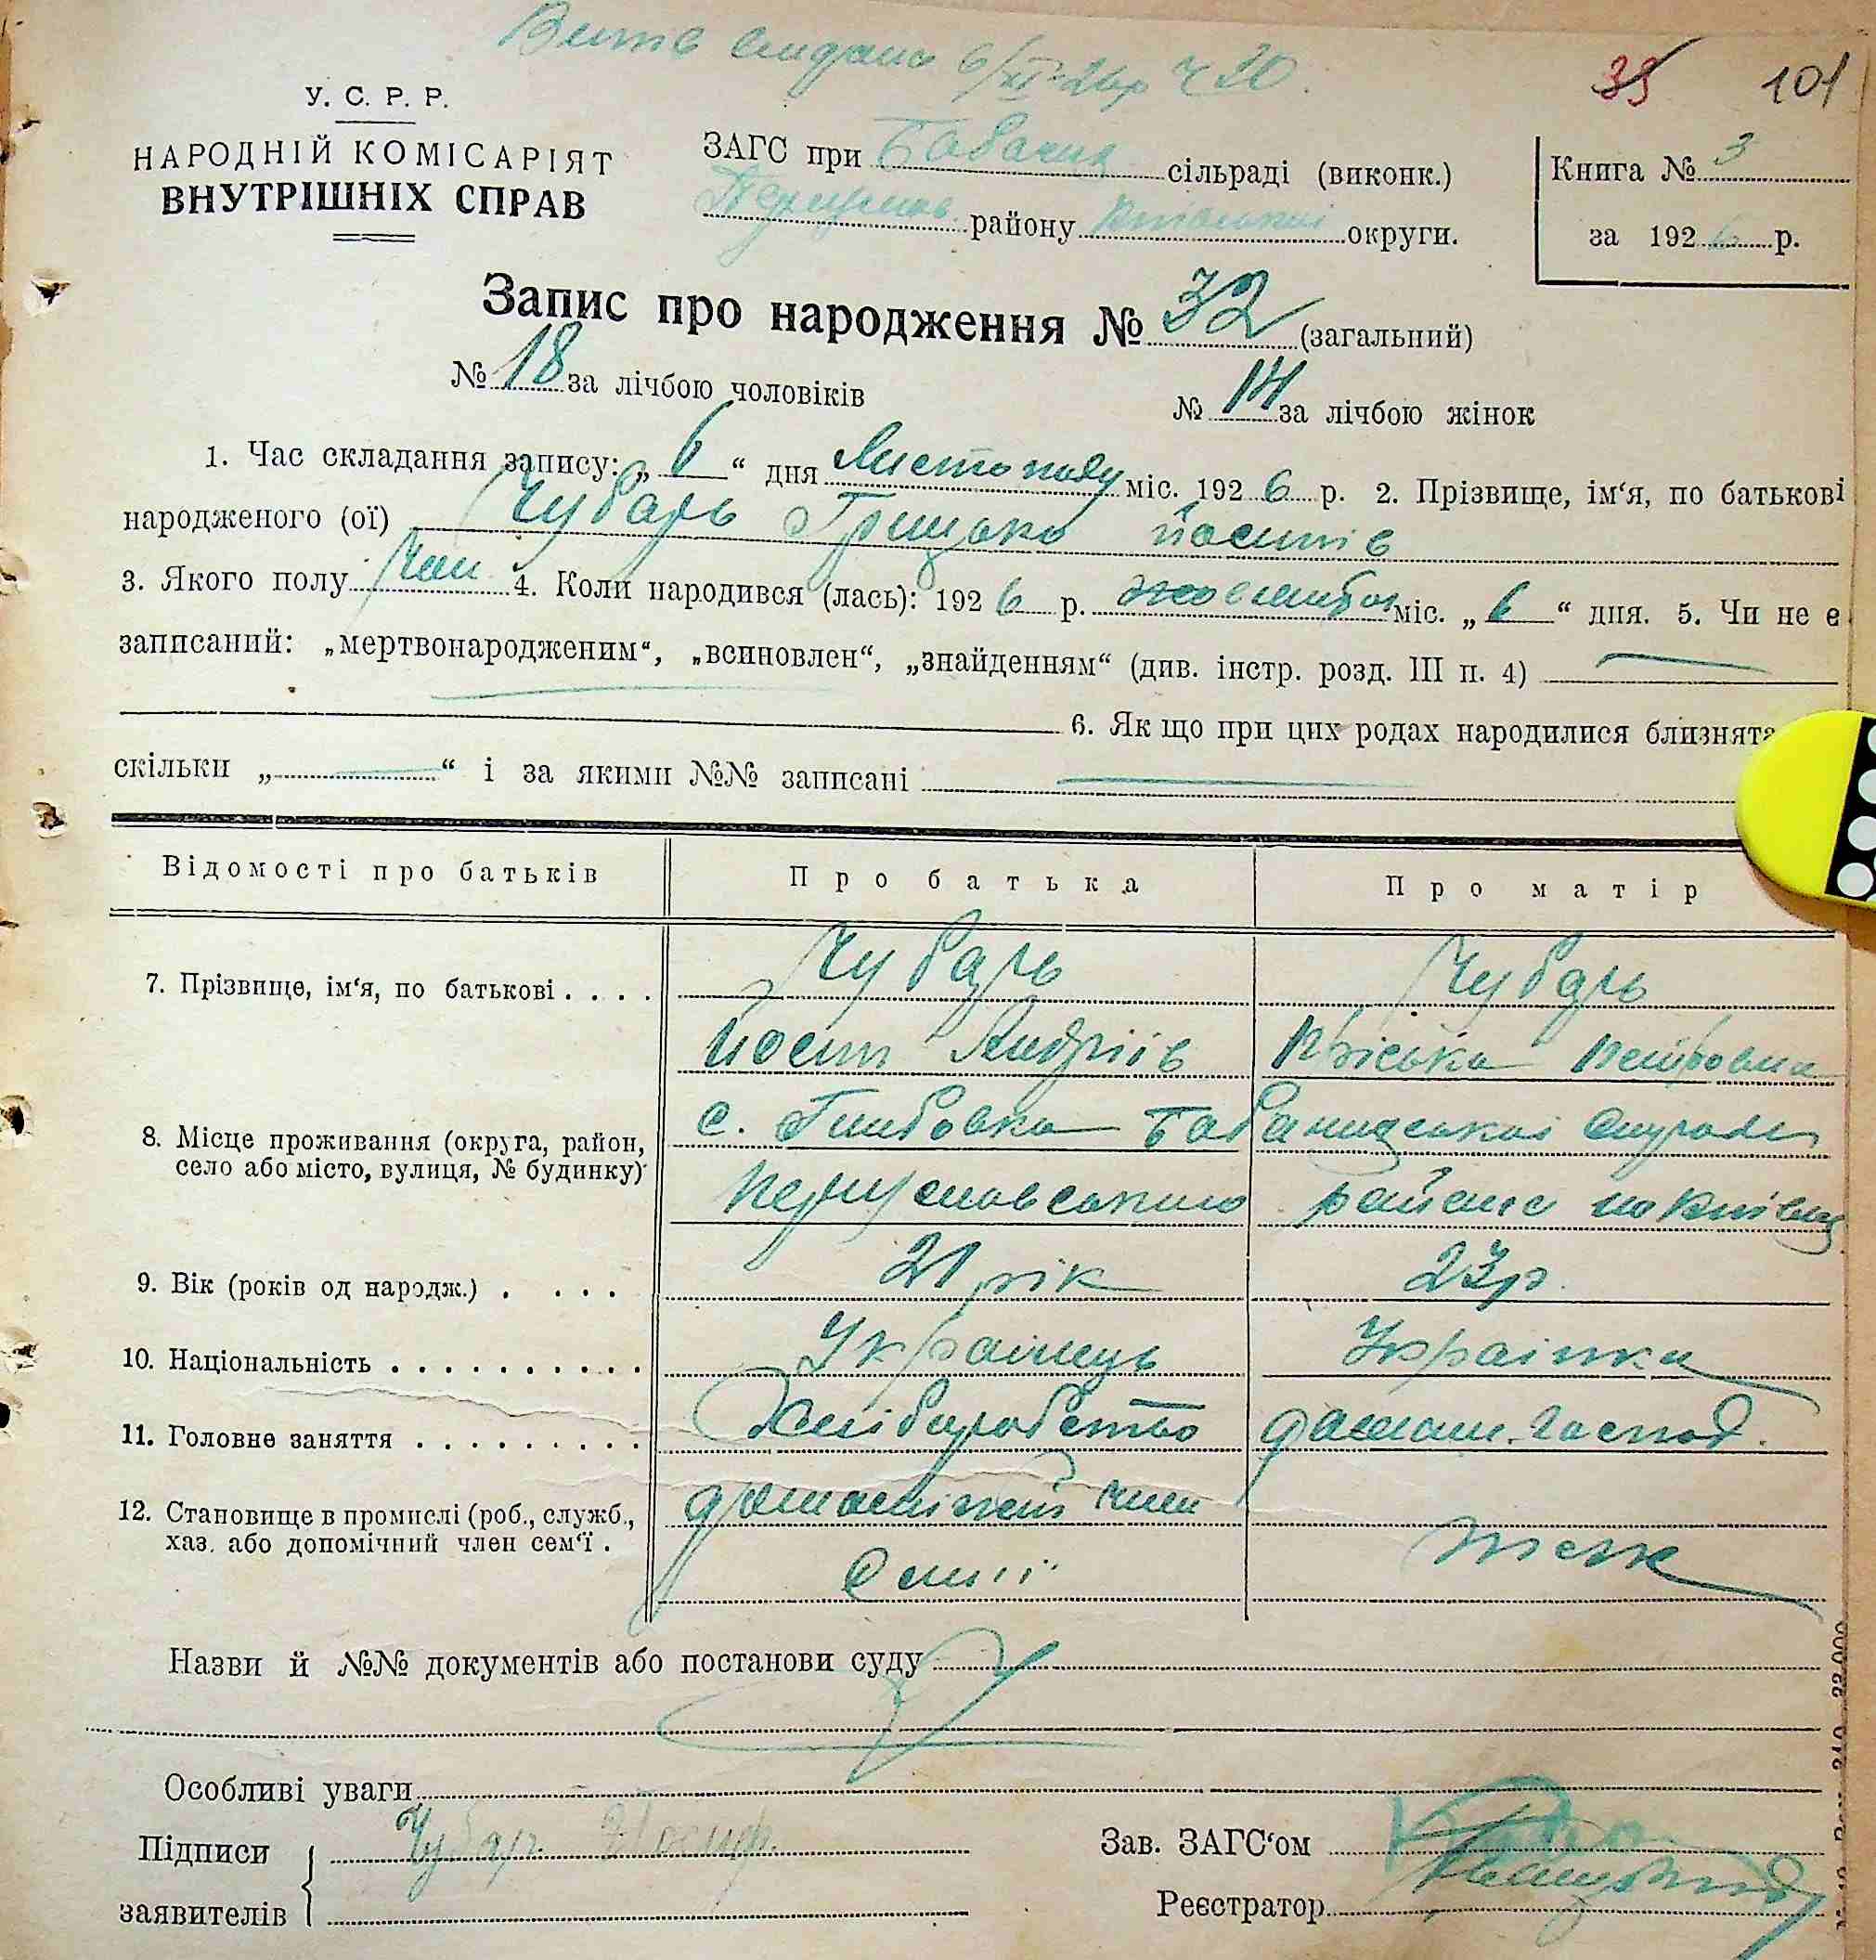 Витяг видано 6/XI-26р Ч 20.
35 101
У. С. Р. Р.
НАРОДНІЙ КОМІСАРІЯТ
ВНУТРІШНІХ СПРАВ
ЗАГС при Бабачих сільраді (виконк.)
району Київської округи.
Книга № 3
за 1926 р.
Запис про народження № 32 (загальний)
№ 18 за лічбою чоловіків № 14 за лічбою жінок
1. Час складання запису: „6“ дня Листопаду міс. 1926 р. 2. Прізвище, ім‘я, по батькові
народженого (ої) Чубарь Грицько Йосипів
3. Якого полу Чол. 4. Коли народився (лась): 1926 р. міс. „6“ дня. 5. Чи не є
записаний: „мертвонародженим“, „всиновлен“, „знайденням“ (див. інстр. розд. III п. 4)
6. Як що при цих родах народилися близнята
скільки „ “ і за якими №№ записані
Відомості про батьків Про батька Про матір
7. Прізвище, ім‘я, по батькові . . . . Чубарь Чубарь
Йосип Андріїв Петровна
8. Місце проживання (округа, район, с.
село або місто, вулиця, № будинку) району на Київщ
9. Вік (років од народж.) . . . . 21 рік 23р.
10. Національність . . . . . . . . . . Українець Українка
11. Головне заняття . . . . . . . . . Хліборобство домашн. господ.
12. Становище в промислі (роб., служб., член
хаз. або допомічний член сем‘ї . теж
Назви й №№ документів або постанови суду
Особливі уваги
Підписи Чубар Зав. ЗАГС‘ом
заявителів Реєстратор